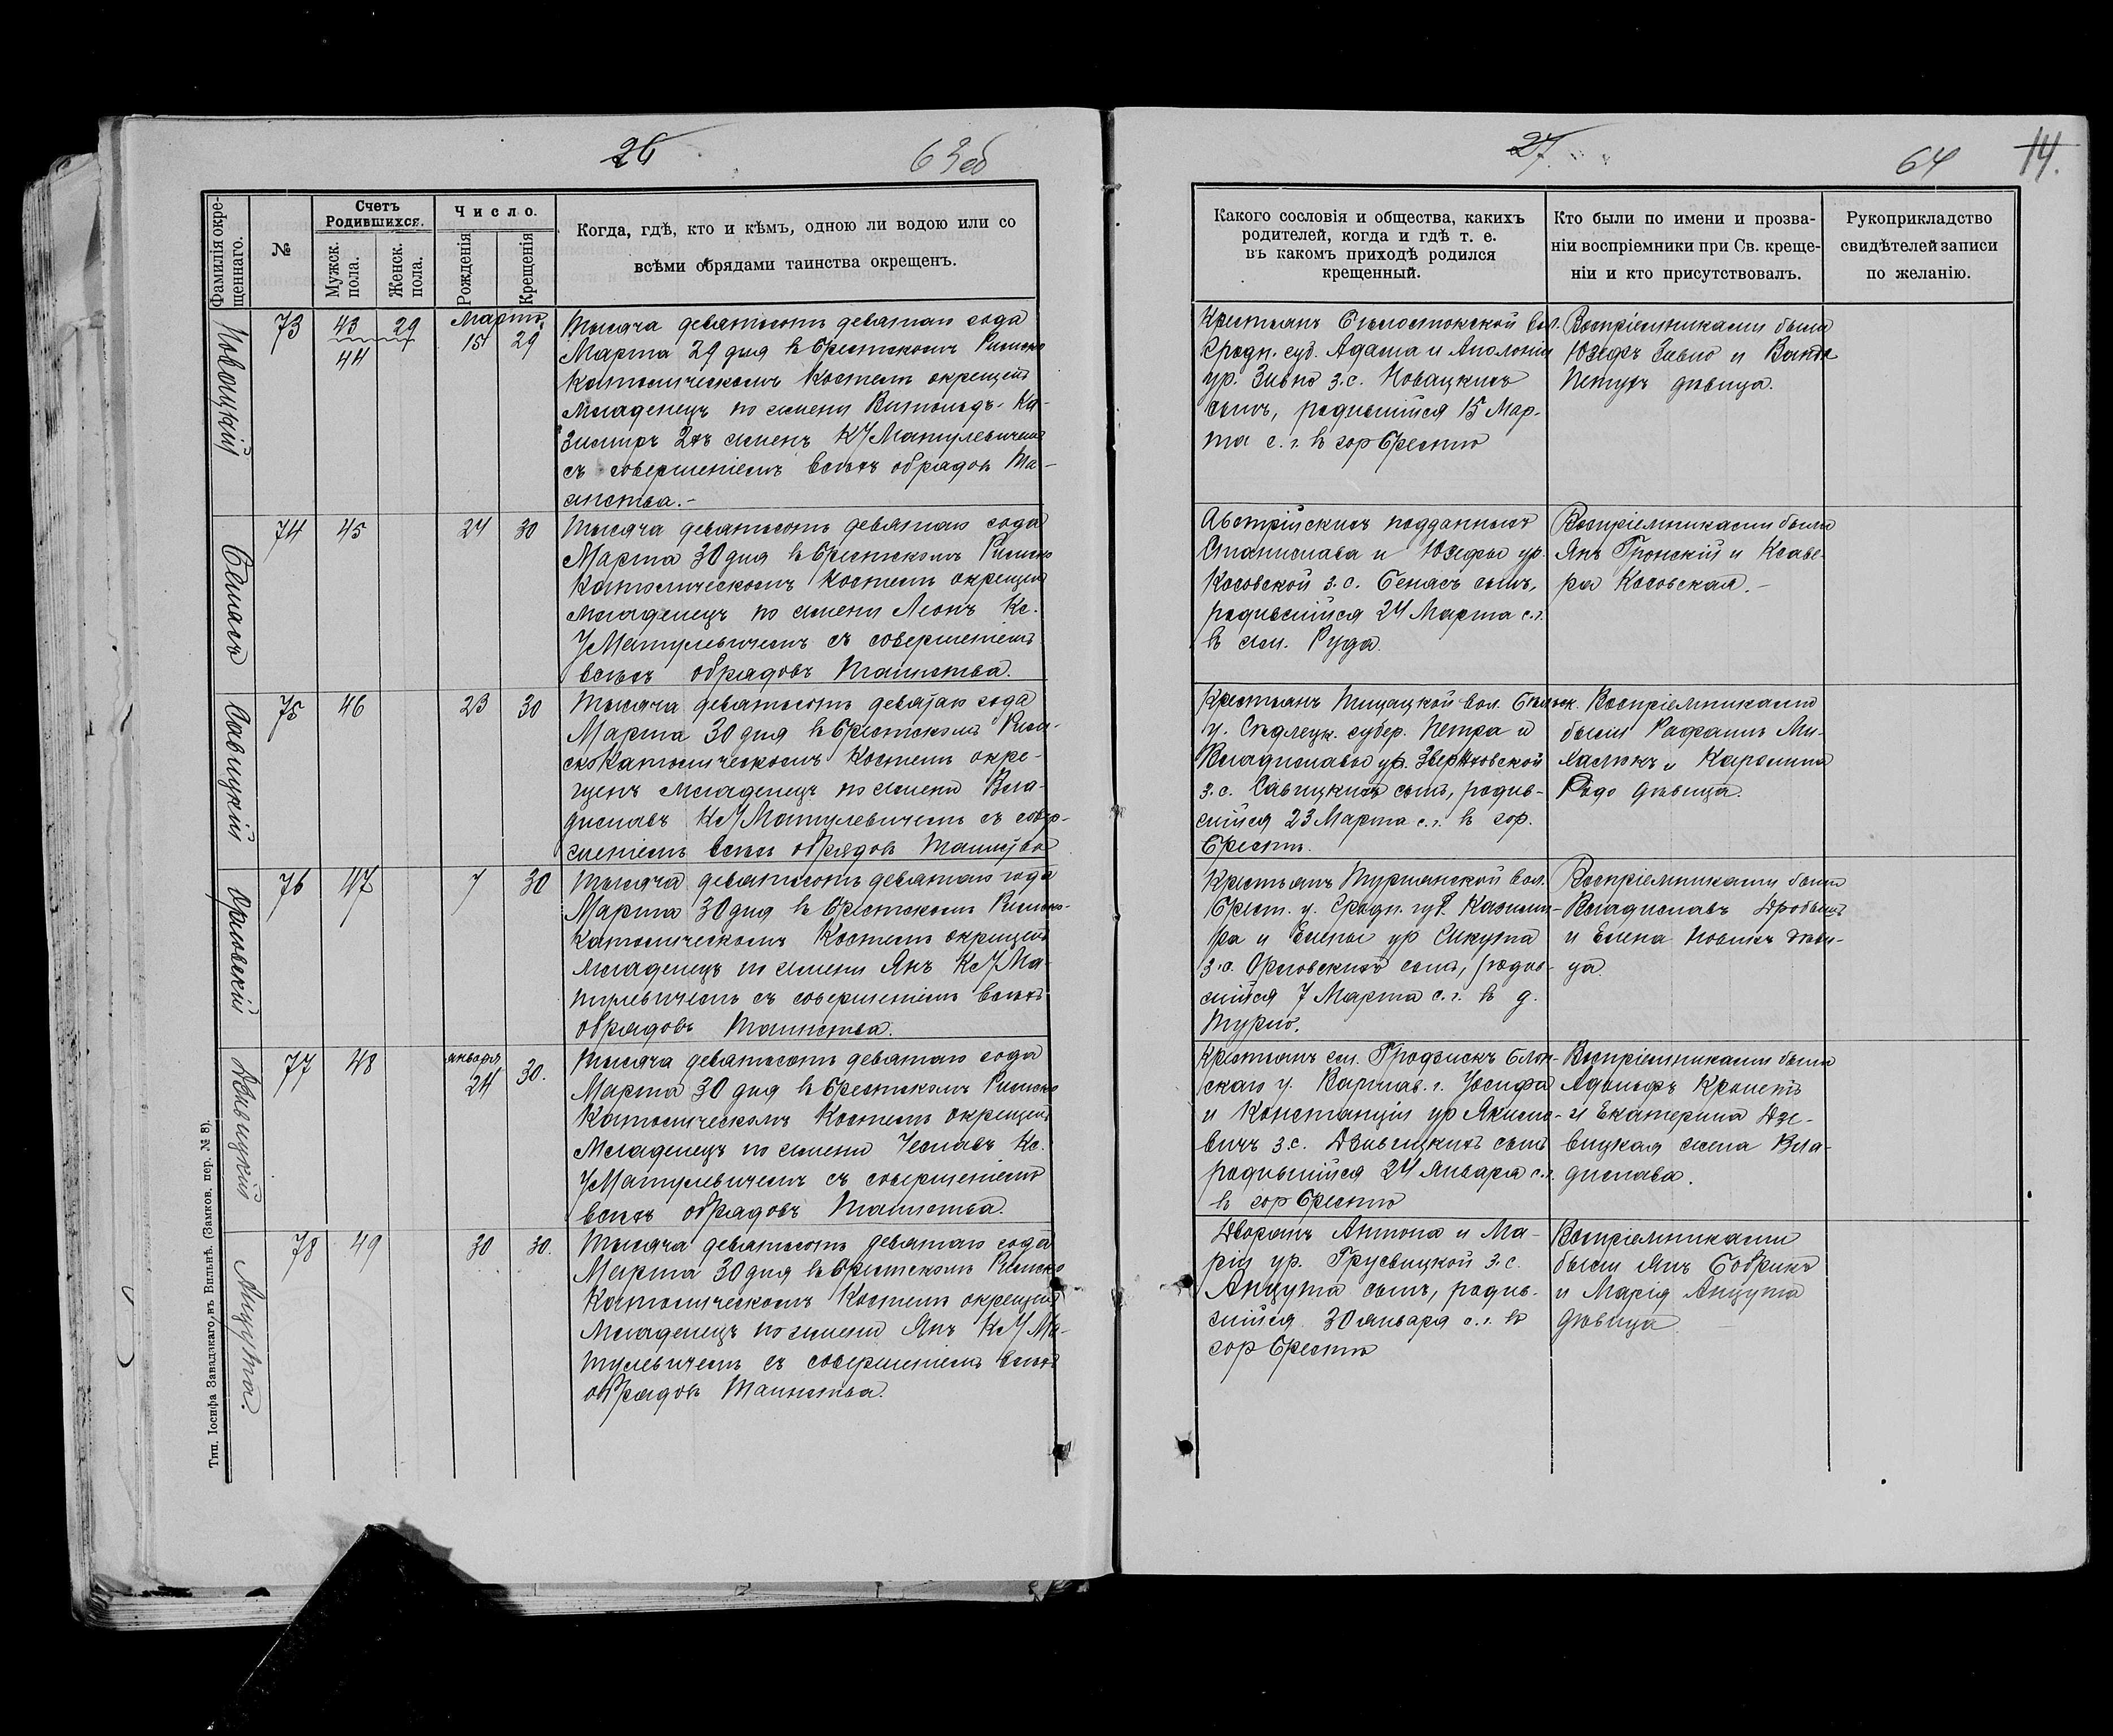 26
63об
Фамилія окре-
щеннаго.
№
Счетъ
Родившихся.
Мужск.
пола.
Женск.
пола.
Число.
Рожденія
Крещенія
Когда, гдѣ, кто и кѣмъ, одною ли водою или со
всѣми обрядами таинства окрещенъ.
Новацкій
73
43
29
44
Марта
15
29
Тысяча девятьсотъ девятаго года
Марта 29 дня въ Брестскомъ Римско
Католическомъ Костелѣ окрещенъ
младенецъ по имени Витольдъ-Ка-
зимиръ 2хъ именъ Кс У Матулевичемъ
съ совершеніемъ всѣхъ обрядовъ Та-
инства.-
Бенасъ
74
45
24
30
Тысяча девятьсотъ девятаго года
Марта 30 дня въ Брестскомъ Римско
Католическомъ Костелѣ окрещенъ
младенецъ по имени Леонъ Кс.
У Матулевичемъ съ совершеніемъ
всѣхъ обрядовъ Таинства.
Савицкій
75
46
23
30
Тысяча девятьсотъ девятаго года
Марта 30 дня въ Брестскомъ Рим-
скоКатолическомъ Костелѣ окре-
щенъ младенецъ по имени Вла-
диславъ Кс У Матулевичемъ съ совер-
шеніемъ всѣхъ обрядовъ Таинства
Орловскій
76
47
7
30
Тысяча девятьсотъ девятаго года
Марта 30 дня въ Брестскомъ Римско-
Католическомъ Костелѣ окрещенъ
младенецъ по имени Янъ Кс У Ма-
тулевичемъ съ совершеніемъ всѣхъ
обрядовъ Таинства.
Дзивицкій
77
48
января
24
30.
Тысяча девятьсотъ девятаго года
Марта 30 дня въ Брестскомъ Римско
Католическомъ Костелѣ окрещенъ
младенецъ по имени Чеславъ Кс.
У Матулевичемъ съ совершеніемъ
всѣхъ обрядовъ Таинства.
Анцута.
78
49
30
30.
Тысяча девятьсотъ девятаго года
Марта 30 дня въ Брестскомъ Римско
Католическомъ Костелѣ окрещенъ
младенецъ по имени Янъ Кс У Ма-
тулевичемъ съ совершеніемъ всѣхъ
обрядовъ Таинства.
Тип. Іосифа Завадзкаго, въ Вильнѣ. (Замков. пер. № 8).
27.
64
14.
Какого сословія и общества, какихъ
родителей, когда и гдѣ т. е.
въ какомъ приходѣ родился
крещенный.
Кто были по имени и прозва-
ніи воспріемники при Св. креще-
ніи и кто присутствовалъ.
Рукоприкладство
свидѣтелей записи
по желанію.
Крестьянъ Бѣлостокской вол.
Гродн. губ. Адама и Аполоніи
ур. Зивно з.с. Новацкихъ
сынъ, родившійся 15 Мар-
та с. г. въ гор Брестѣ
Воспріемниками были
Юзефъ Зивно и Ванда
Петухъ дѣвица.
Австрійскихъ подданныхъ
Станислава и Юзефы ур.
Косовской з.с. Бенасъ сынъ,
родившійся 24 Марта с.г.
въ им. Руда.
Воспріемниками были
Янъ Глонскій и Ксаве-
ра Косовская.-
Крестьянъ Тищацкой вол. Бѣльск.
у. Сѣдлецк. губер. Петра и
Владиславы ур. Звержховской
з.с. Савицкихъ сынъ, родив-
шійся 23 Марта с.г. въ гор.
Брестѣ.
Воспріемниками
были Рафаилъ Ми-
халюкъ и Каролина
Рыдо дѣвица.
Крестьянъ Турнянской вол.
Брест. у. Гродн. губ. Казими-
ра и Елены ур Сикута
з.с. Орловскихъ сынъ, родив-
шійся 7 Марта с.г. въ д.
Турно.
Воспріемниками были
Владиславъ Дробышъ
и Елена Новикъ дѣви-
ца.
Крестьянъ гм. Гродзискъ Блон-
скаго у. Варшав. г. Іосифа
и Констанціи ур Якимо-
вичъ з.с. Дзивицкихъ сынъ
родившійся 24 Января с.г.
въ гор Брестѣ
Воспріемниками были
Адольфъ Крошетъ
и Екатерина Дзе-
вицкая жена Вла-
дислава.
Дворянъ Антона и Ма-
ріи ур. Грусвицкой з.с.
Анцута сынъ, родив-
шійся 30 января с.г. въ
гор Брестѣ
Воспріемниками
были Янъ Бобрикъ
и Марія Анцута
дѣвица